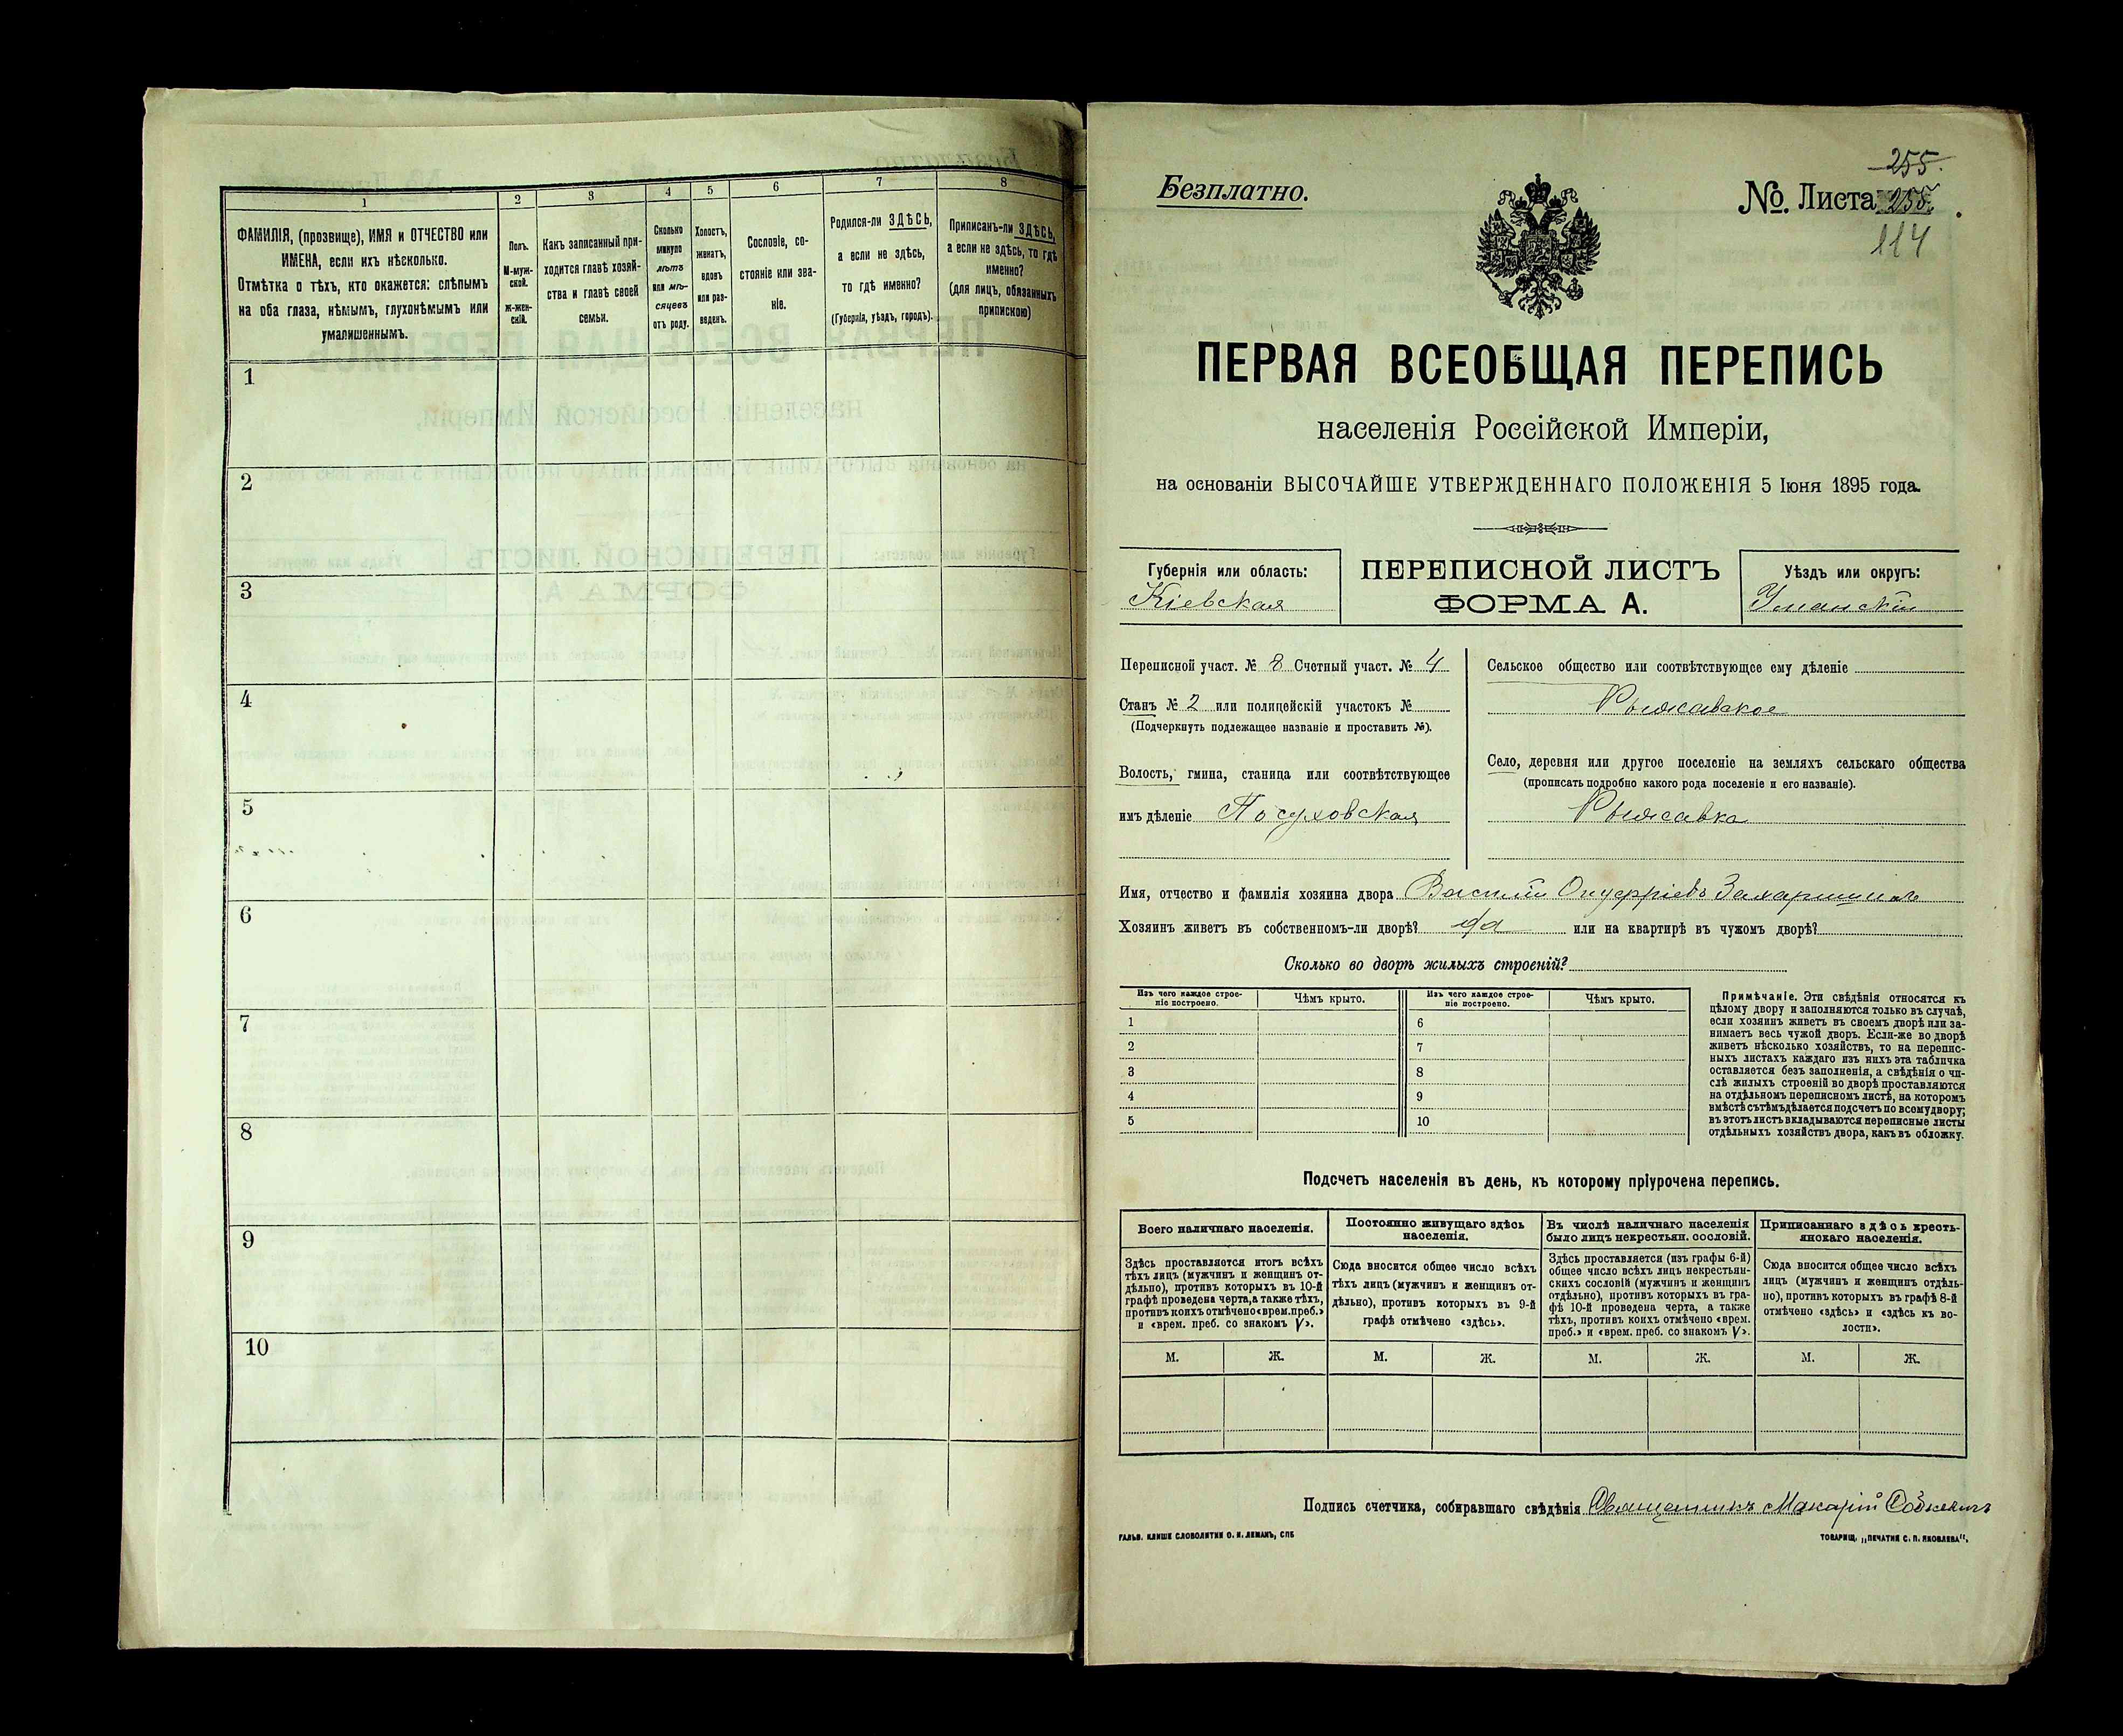 1
2
3
4
5
6
7
8
ФАМИЛІЯ, (прозвище), ИМЯ и ОТЧЕСТВО или
ИМЕНА, если ихъ нѣсколько.
Отмѣтка о тѣхъ, кто окажется: слѣпымъ
на оба глаза, нѣмымъ, глухонѣмымъ или
умалишеннымъ.
Полъ.
М-муж-
ской.
Ж-жен-
скій.
Какъ записанный при-
ходится главѣ хозяй-
ства и главѣ своей
семьи.
Сколько
минуло
лѣтъ
или мѣ-
сяцевъ
отъ роду.
Холостъ,
женатъ,
вдовъ
или раз-
веденъ.
Сословіе, со-
стояніе или зва-
ніе.
Родился-ли ЗДѢСЬ,
а если не здѣсь,
то гдѣ именно?
(Губернія, уѣздъ, городъ).
Приписанъ-ли ЗДѢСЬ,
а если не здѣсь, то гдѣ
именно?
(для лицъ, обязанныхъ
припискою)
1
2
3
4
5
6
7
8
9
10
255.
Безплатно.
№. Листа 255.
114
ПЕРВАЯ ВСЕОБЩАЯ ПЕРЕПИСЬ
населенія Россійской Имперіи,
на основаніи ВЫСОЧАЙШЕ УТВЕРЖДЕННАГО ПОЛОЖЕНІЯ 5 Іюня 1895 года.
Губернія или область:
Кіевская
ПЕРЕПИСНОЙ ЛИСТЪ
ФОРМА А.
Уѣздъ или округъ:
Уманскій
Переписной участ. № 8 Счетный участ. № 4
Станъ № 2 или полицейскій участокъ №
(Подчеркнуть подлежащее названіе и проставить №).
Волость, гмина, станица или соотвѣтствующее
имъ дѣленіе Посуховская
Сельское общество или соотвѣтствующее ему дѣленіе
Рыжавское
Село, деревня или другое поселеніе на земляхъ сельскаго общества
(прописать подробно какого рода поселеніе и его названіе).
Рыжавка
Имя, отчество и фамилія хозяина двора Василій Онуфріевъ
Хозяинъ живетъ въ собственномъ-ли дворѣ? да или на квартирѣ въ чужомъ дворѣ?
Сколько во дворѣ жилыхъ строеній?
Изъ чего каждое строе-
ніе построено.
Чѣмъ крыто.
Изъ чего каждое строе-
ніе построено.
Чѣмъ крыто.
1
2
3
4
5
6
7
8
9
10
Примѣчаніе. Эти свѣдѣнія относятся къ
цѣлому двору и заполняются только въ случаѣ,
если хозяинъ живетъ въ своемъ дворѣ или за-
нимаетъ весь чужой дворъ. Если-же во дворѣ
живетъ нѣсколько хозяйствъ, то на перепис-
ныхъ листахъ каждаго изъ нихъ эта табличка
оставляется безъ заполненія, а свѣдѣнія о чи-
слѣ жилыхъ строеній во дворѣ проставляются
на отдѣльномъ переписномъ листѣ, на которомъ
вмѣстѣ съ тѣмъ дѣлается подсчетъ по всему двору;
въ этотъ листъ вкладываются переписные листы
отдѣльныхъ хозяйствъ двора, какъ въ обложку.
Подсчетъ населенія въ день, къ которому пріурочена перепись.
Всего наличнаго населенія.
Постоянно живущаго здѣсь
населенія.
Въ числѣ наличнаго населенія
было лицъ некрестьян. сословій.
Приписаннаго здѣсь кресть-
янскаго населенія.
Здѣсь проставляется итогъ всѣхъ
тѣхъ лицъ (мужчинъ и женщинъ от-
дѣльно), противъ которыхъ въ 10-й
графѣ проведена черта, а также тѣхъ,
противъ коихъ отмѣчено «врем. преб.»
и «врем. преб. со знакомъ V».
Сюда вносится общее число всѣхъ
тѣхъ лицъ (мужчинъ и женщинъ от-
дѣльно), противъ которыхъ въ 9-й
графѣ отмѣчено «здѣсь».
Здѣсь проставляется (изъ графы 6-й)
общее число всѣхъ лицъ некрестьян-
скихъ сословій (мужчинъ и женщинъ
отдѣльно), противъ которыхъ въ гра-
фѣ 10-й проведена черта, а также
тѣхъ, противъ коихъ отмѣчено «врем.
преб.» и «врем. преб. со знакомъ V».
Сюда вносится общее число всѣхъ
лицъ (мужчинъ и женщинъ отдѣль-
но), противъ которыхъ въ графѣ 8-й
отмѣчено «здѣсь» и «здѣсь къ во-
лости».
М. Ж. М. Ж. М. Ж. М. Ж.
Подпись счетчика, собиравшаго свѣдѣнія Священникъ Макарій
ГАЛЬВ. КЛИШЕ СЛОВОЛИТНИ О. И. ЛЕМАНЪ, СПБ
ТОВАРИЩ. „ПЕЧАТНЯ С. П. ЯКОВЛЕВА".